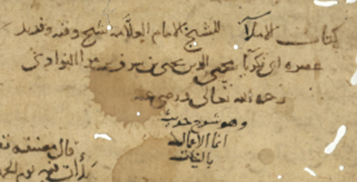 كتاب الاملآ للشيخ الامام العلامة شيخ وقته وفريد
عصره ابي زكريا محيي الدين يحيى بن شرف النواوي
رحمه الله تعالى ورضي عنه
وهو شرح حديث
انما الاعمال
بالنيات
قال مصنفه
بدأت فيه يوم